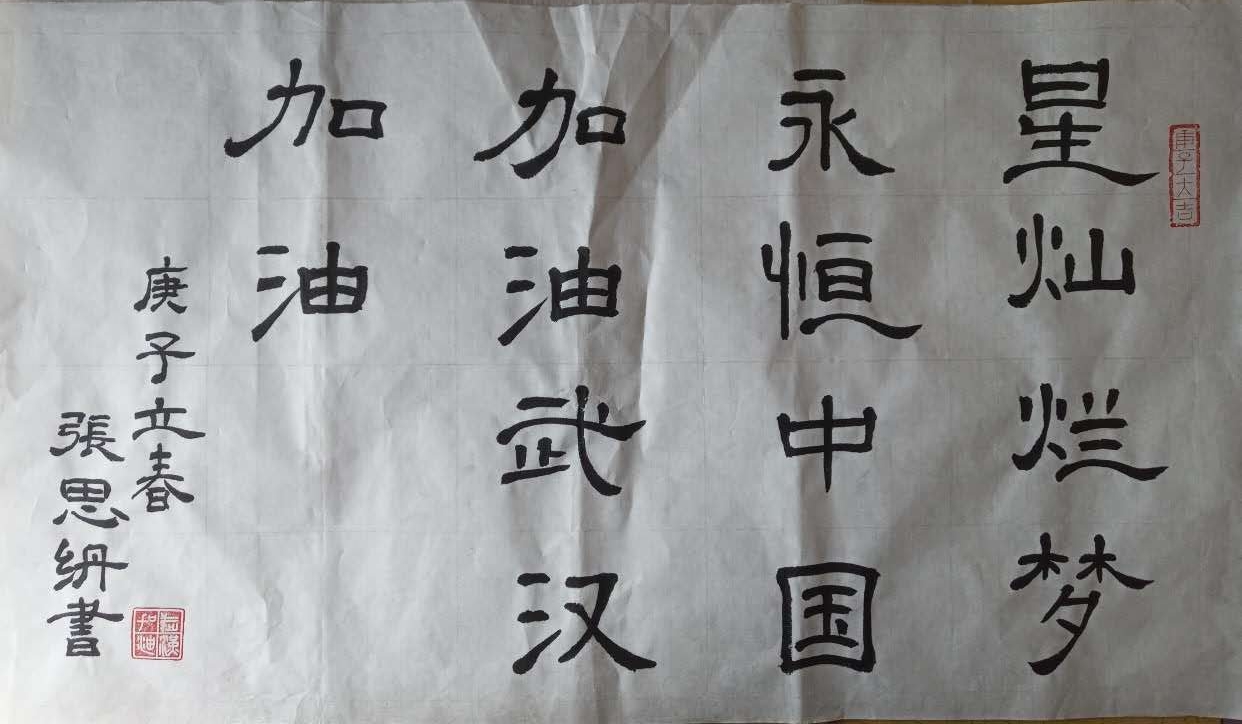 庚子大吉
星灿烂梦
永恒中国
加油武汉
加油
庚子立春
張思䊹書
武漢加油